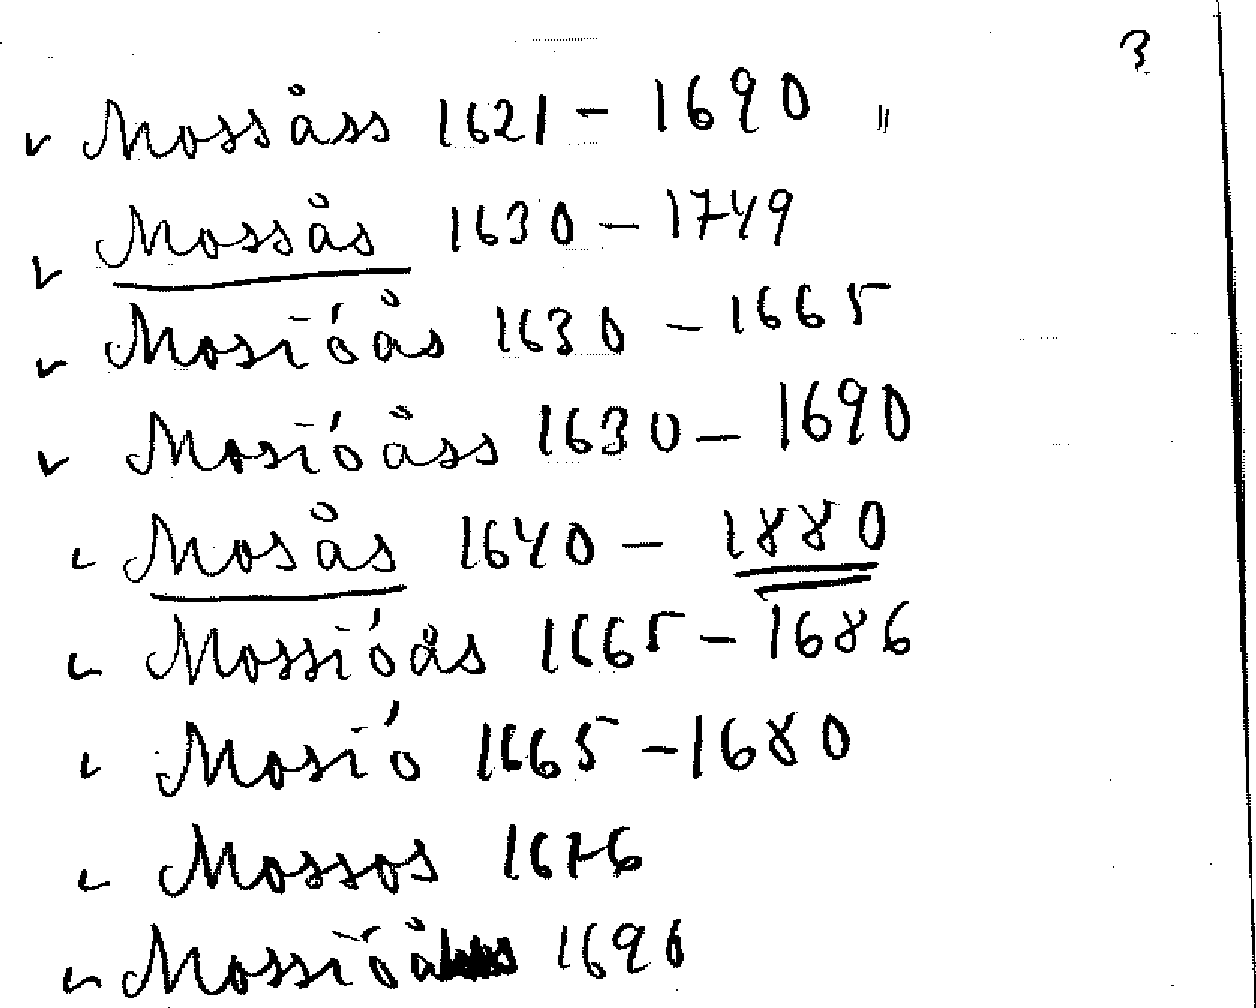 3
✓ Mossåss 1621 – 1690 "
✓ Mossås 1630 – 1749
✓ Mosióås 1630 – 1665
✓ Mosióåss 1630 – 1690
✓ Mosås 1640 – 1880
✓ Mossióås 1665 – 1686
✓ Mosió 1665 – 1680
✓ Mossos 1676
✓ Mossióås 1690